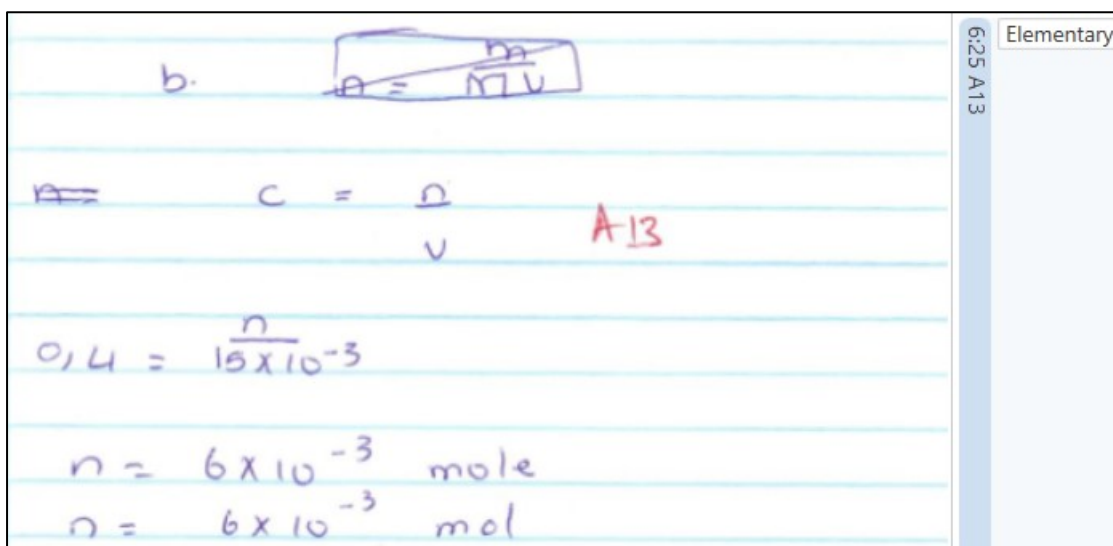 b. n = m / MV
n = c = n / v
A13
0,4 = n / 15 × 10⁻³
n = 6 × 10⁻³ mole
n = 6 × 10⁻³ mol
6:25 A13
Elementary